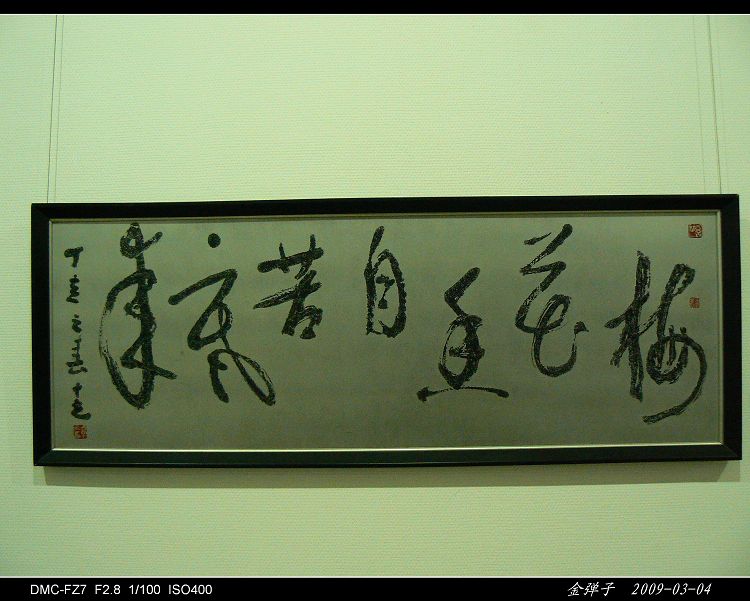 梅花香自苦寒来
DMC-FZ7 F2.8 1/100 ISO400
金弹子 2009-03-04